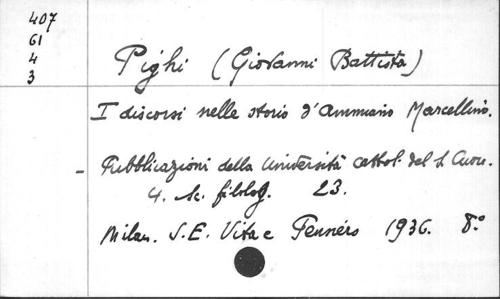 407
61
4
3
Pighi (Giovanni Battista)
I discorsi nelle storie d'Ammiano Marcellino.
- Pubblicazioni della Università cattol. del S. Cuore.
4. Sc. filolog. 23.
Milan. S.E. Vita e Pensiero 1936. 8°.